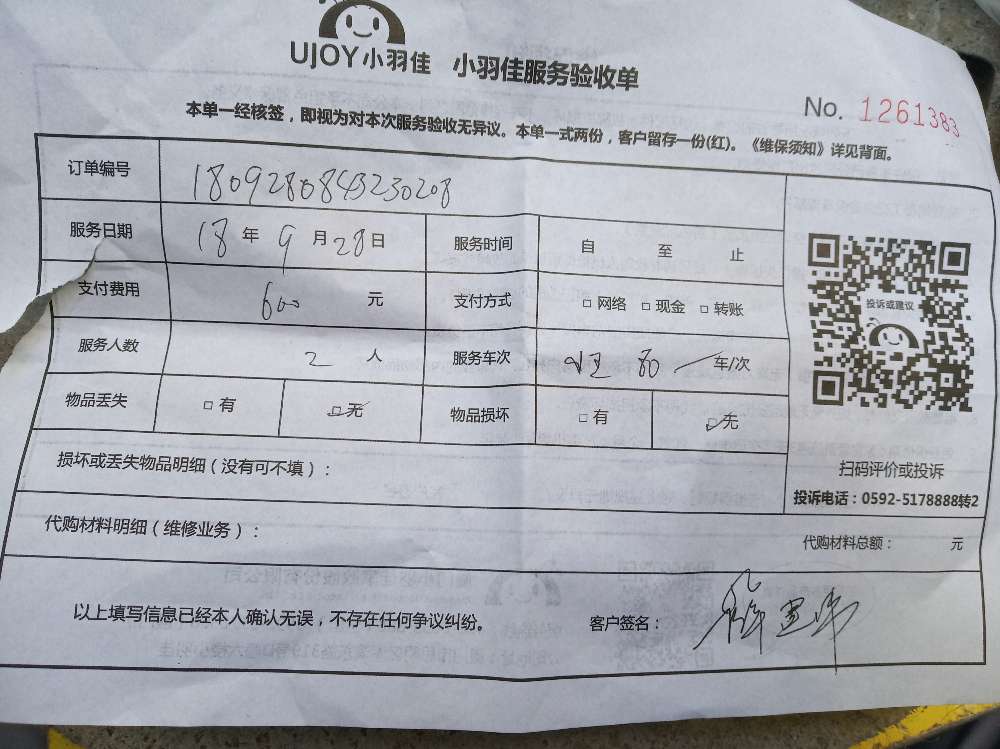 UJOY小羽佳 小羽佳服务验收单
No. 1261383
本单一经核签，即视为对本次服务验收无异议。本单一式两份，客户留存一份(红)。《维保须知》详见背面。
订单编号 1809280843230208
服务日期 18 年 9 月 28 日 服务时间 自 至 止
支付费用 600 元 支付方式 □ 网络 □ 现金 □ 转账
服务人数 2 人 服务车次 80 车/次
物品丢失 □ 有 □ 无 物品损坏 □ 有 □ 无
投诉或建议
扫码评价或投诉
投诉电话：0592-5178888转2
损坏或丢失物品明细（没有可不填）：
代购材料明细（维修业务）：
代购材料总额： 元
以上填写信息已经本人确认无误，不存在任何争议纠纷。 客户签名：